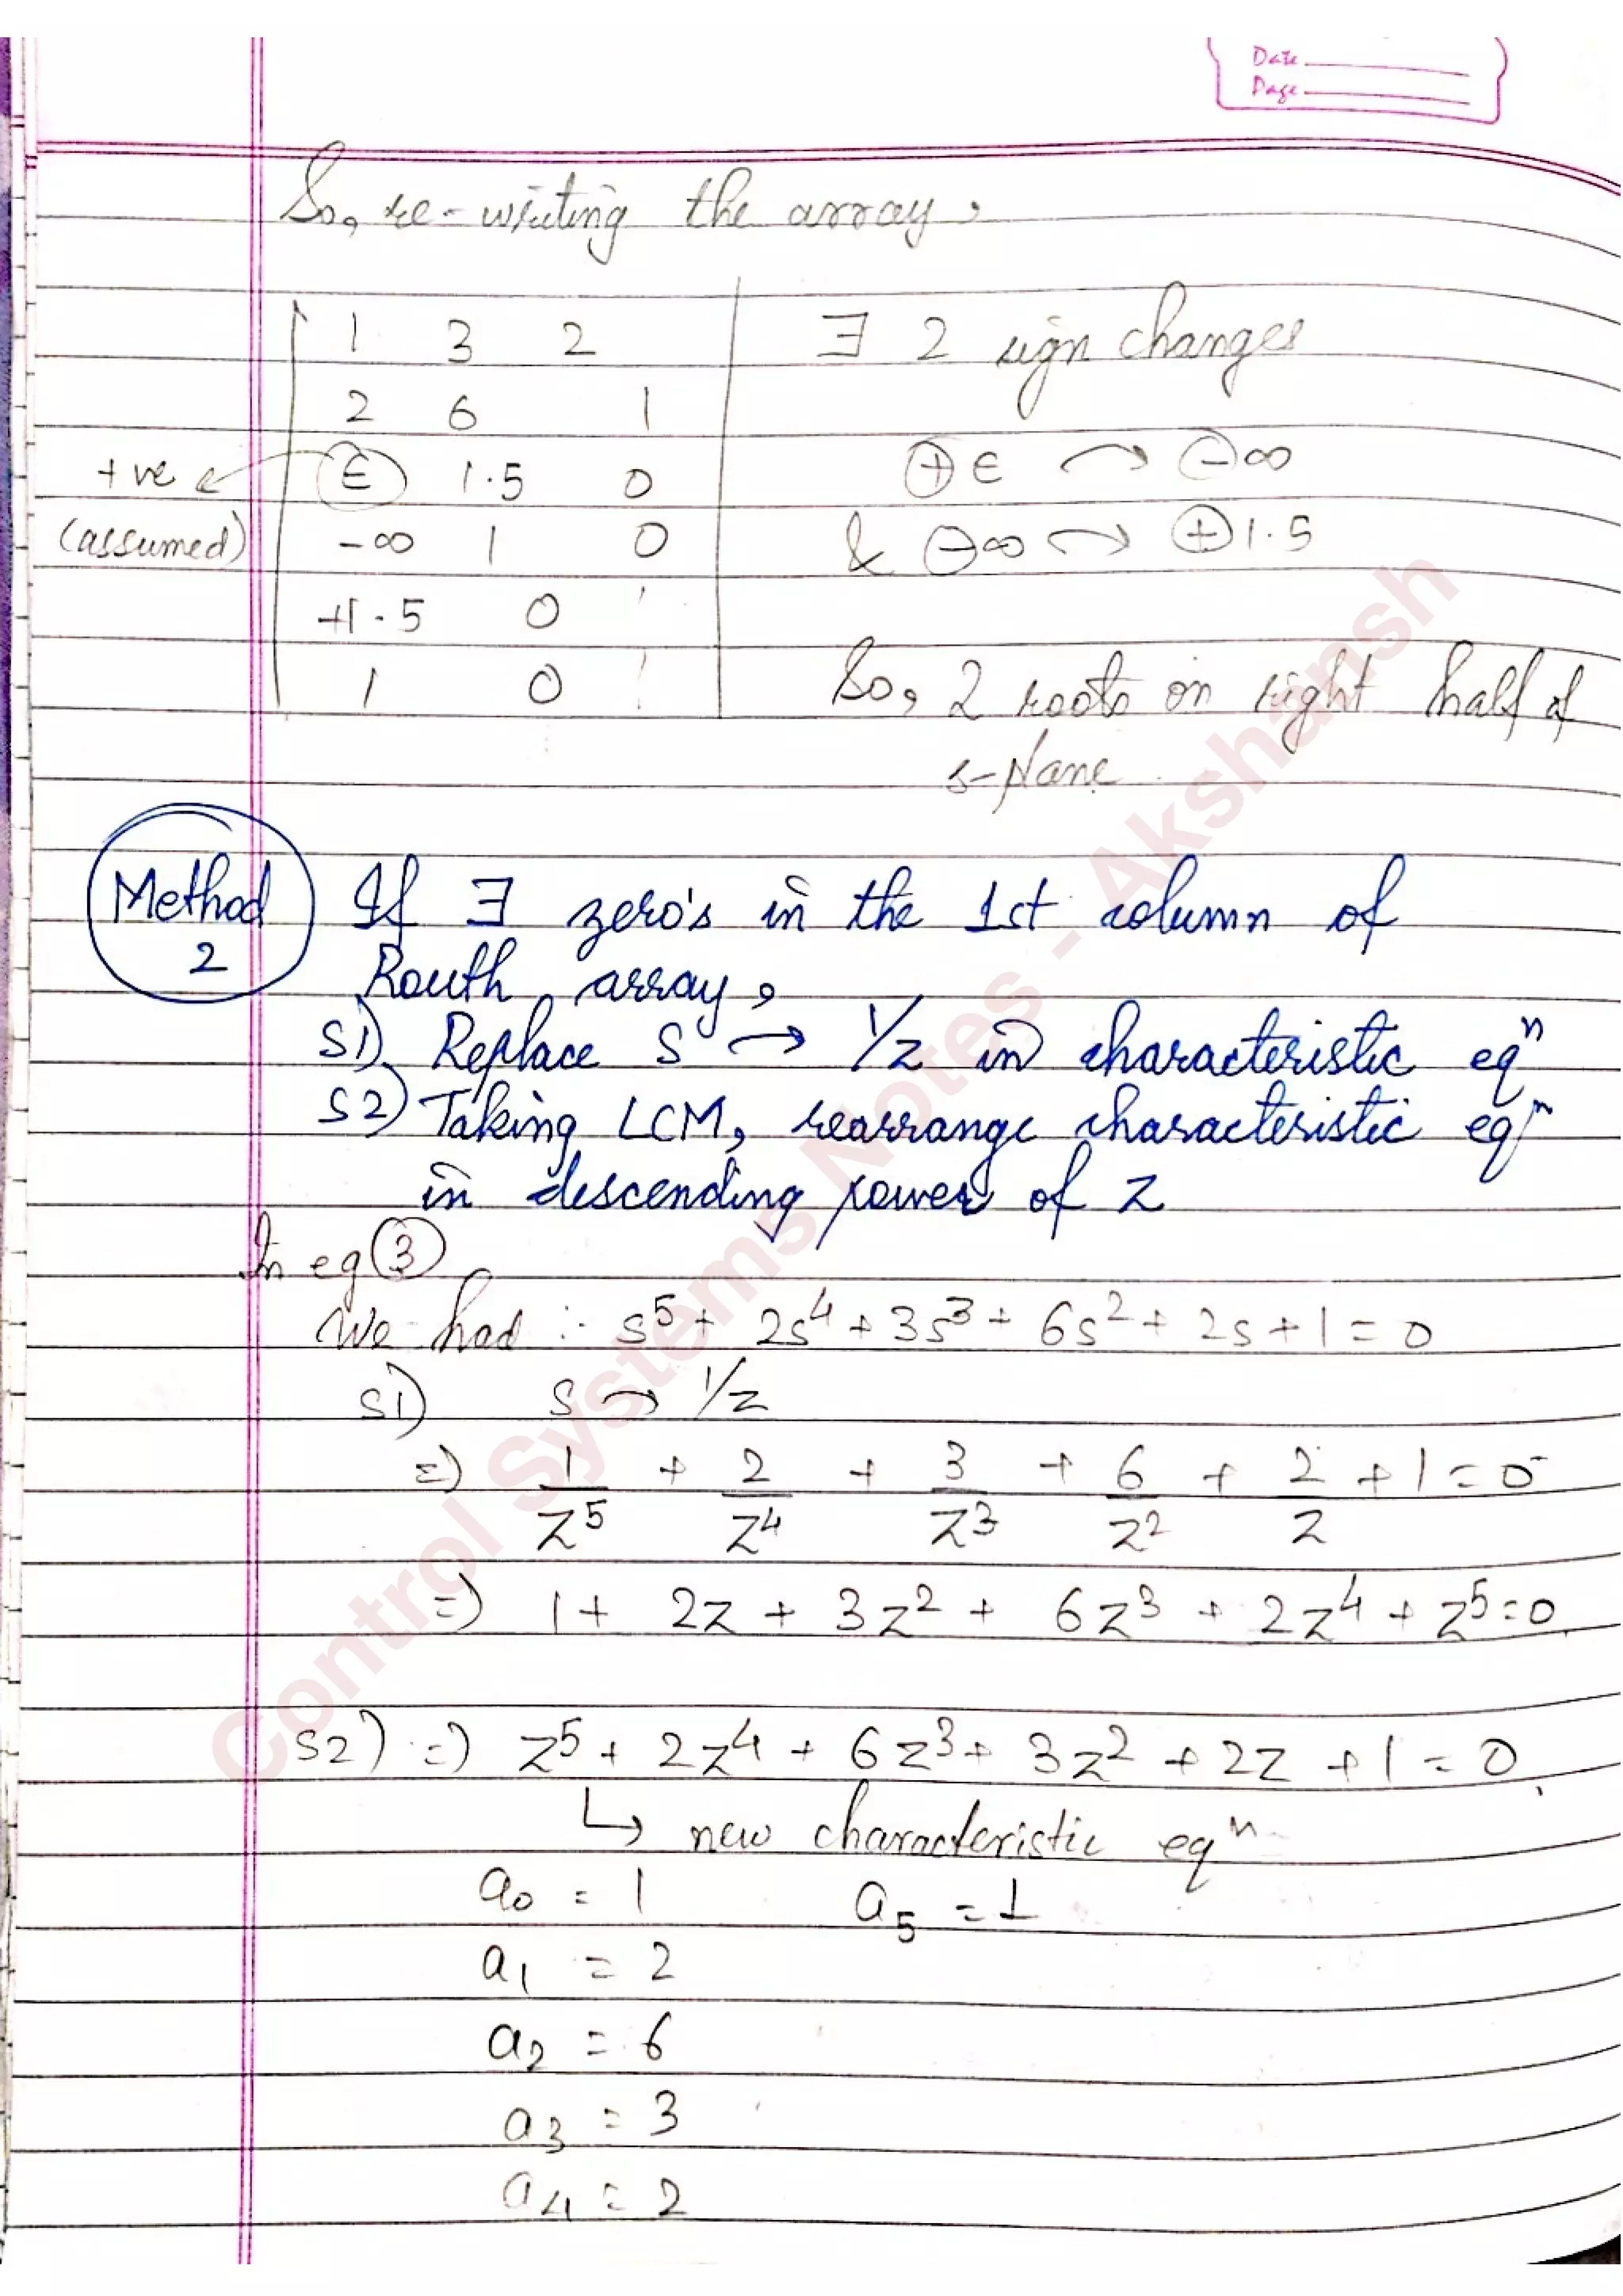 Date
Page
So, re-writing the array,
1 3 2
2 6 1
+ve ← ∈ 1.5 0
(assumed) -∞ 1 0
+1.5 0
1 0
∃ 2 sign changes
⊕ ∈ → ⊖∞
& ⊖∞ → ⊕1.5
So, 2 roots on right half of
s-plane
Method
2
If ∃ zero's in the 1st column of
Routh array,
S1) Replace S → 1/z in characteristic eqⁿ
S2) Taking LCM, rearrange characteristic eqⁿ
in descending power of z
In eg ③
We had :- s⁵ + 2s⁴ + 3s³ + 6s² + 2s + 1 = 0
S1) S → 1/z
=) 1/z⁵ + 2/z⁴ + 3/z³ + 6/z² + 2/z + 1 = 0
=) 1 + 2z + 3z² + 6z³ + 2z⁴ + z⁵ = 0
S2) =) z⁵ + 2z⁴ + 6z³ + 3z² + 2z + 1 = 0
↳ new characteristic eqⁿ
a₀ = 1 a₅ = 1
a₁ = 2
a₂ = 6
a₃ = 3
a₄ = 2
Control Systems Notes - Akshansh